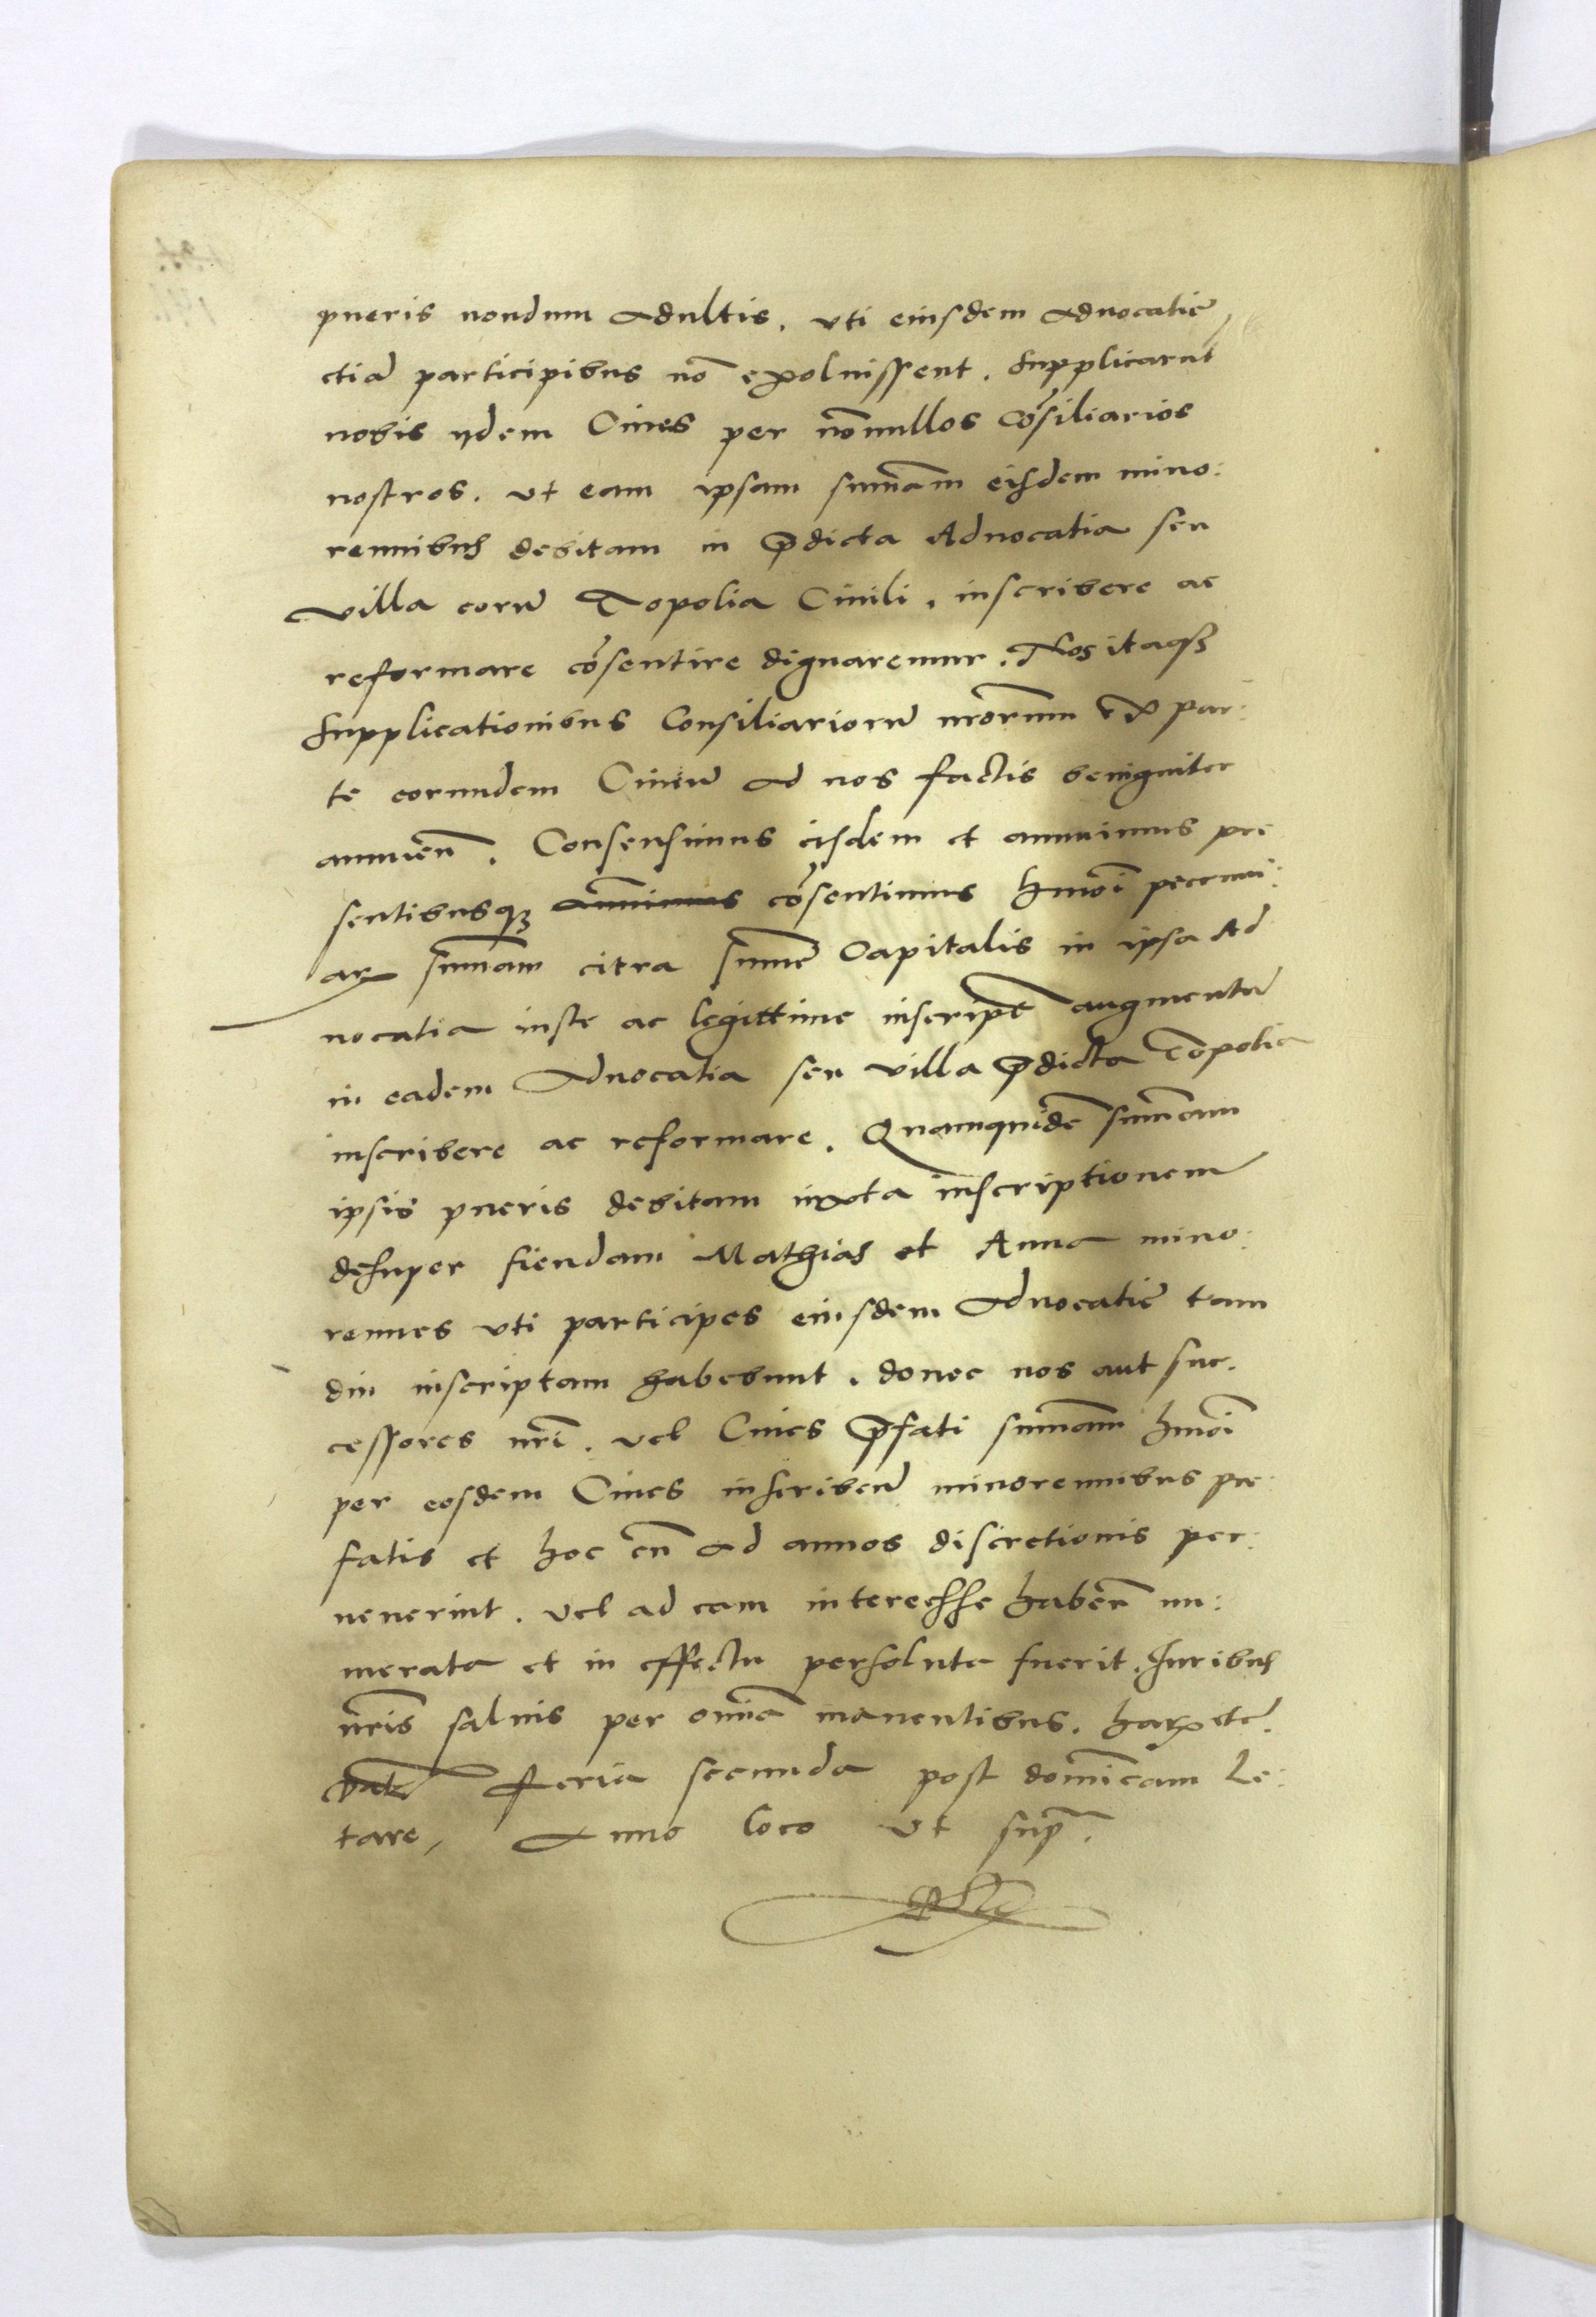 pueris nondum adultis. uti eiusdem aduocatiẽ
etiã participibus nõ exoluissent. supplicarũt
nobis ijdem Ciues per nõnullos cõsiliarios
nostros. ut eam ipsam sum̃am eisdem mino:
rennibus debitam in p̃dicta Aduocatia seu
villa eorũ Topolia Ciuili. inscribere ac
reformare cõsentire dignaremur. Nos itaq₃
supplicationibus Consiliariorũ nr̃orum ex par:
te eorundem Ciuiũ ad nos factis benigniter
annuen̄. Consensimus eisdem et annuimus pre
sentibusq₃ annuimus cõsentimus hm̃oi pecuni:
arꝝ sum̃am citra sum̃ẽ Capitalis in ipsa Ad
uocatia iuste ac legittime inscripte augmentũ
in eadem Aduocatia seu villa p̃dicta Topolia
inscribere ac reformare. Quamquidẽ sum̃am
ipsis pueris debitam iuxta inscriptionem
desuper fiendam Mathias et Anna mino:
rennes uti participes eiusdem Aduocatiẽ tam
diu inscriptam habebunt. donec nos aut suc.
cessores nr̃i. uel Ciues p̃fati sum̃am hm̃oi
per eosdem Ciues inscribeñ minorennibus pre
fatis et hoc cũ ad annos discretionis per:
uenerint. uel ad eam interesse habeñ nu:
merata et in effectu persoluta fuerit. Iuribus
nr̃is saluis per om̃ia manentibus. harꝝ etc̃.
Dat̃ feria secunda post dominicam Le:
tare, Anno loco ut sup̃.